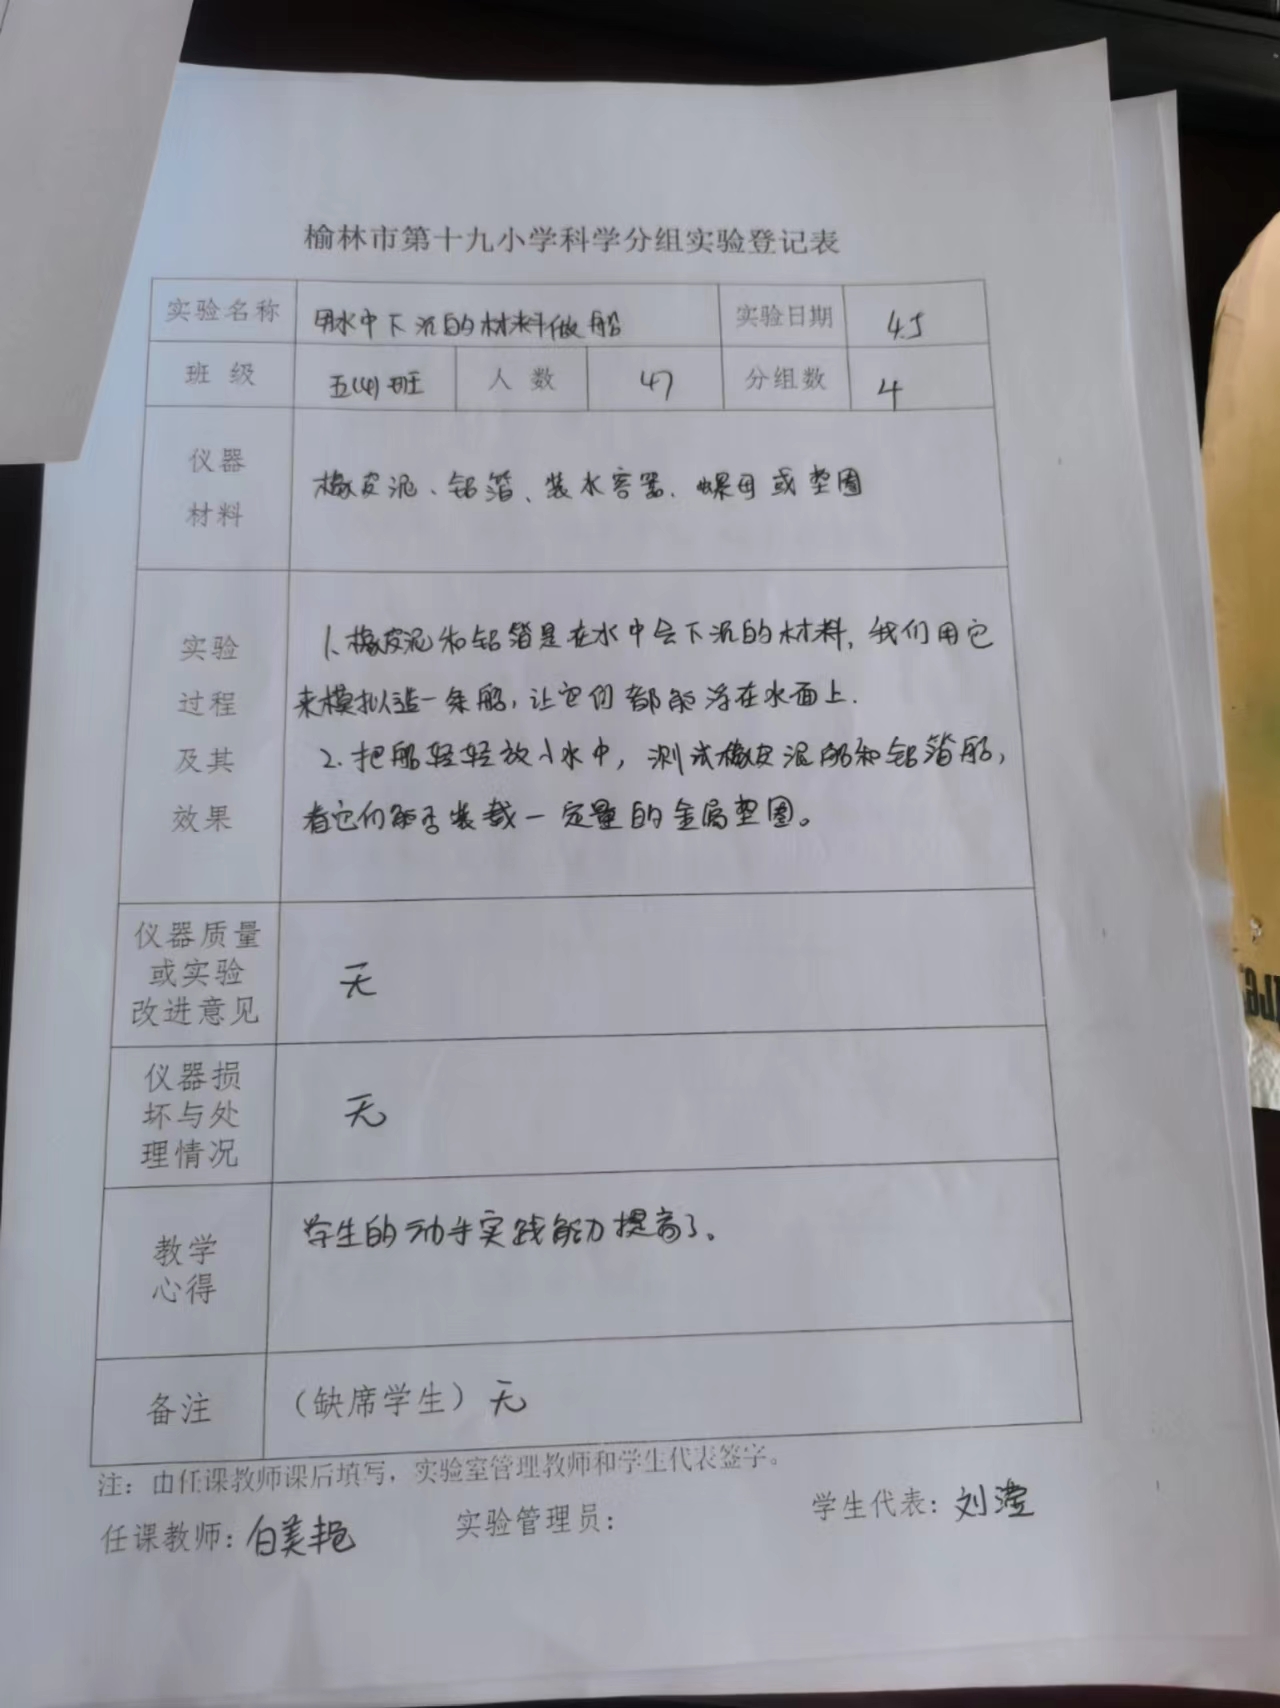 榆林市第十九小学科学分组实验登记表
实验名称 用水中下沉的材料做船 实验日期 4.5
班级 五(4)班 人数 47 分组数 4
仪器
材料
橡皮泥、铝箔、装水容器、螺母或垫圈
实验
过程
及其
效果
1、橡皮泥和铝箔是在水中会下沉的材料,我们用它
来模拟造一条船,让它们都能浮在水面上.
2.把船轻轻放小水中,测试橡皮泥船和铝箔船,
看它们能否装载一定量的金属垫圈。
仪器质量
或实验
改进意见
无
仪器损
坏与处
理情况
无
教学
心得
学生的动手实践能力提高了。
备注 (缺席学生)无
注:由任课教师课后填写,实验室管理教师和学生代表签字。
任课教师:白美艳 实验管理员: 学生代表:刘滢